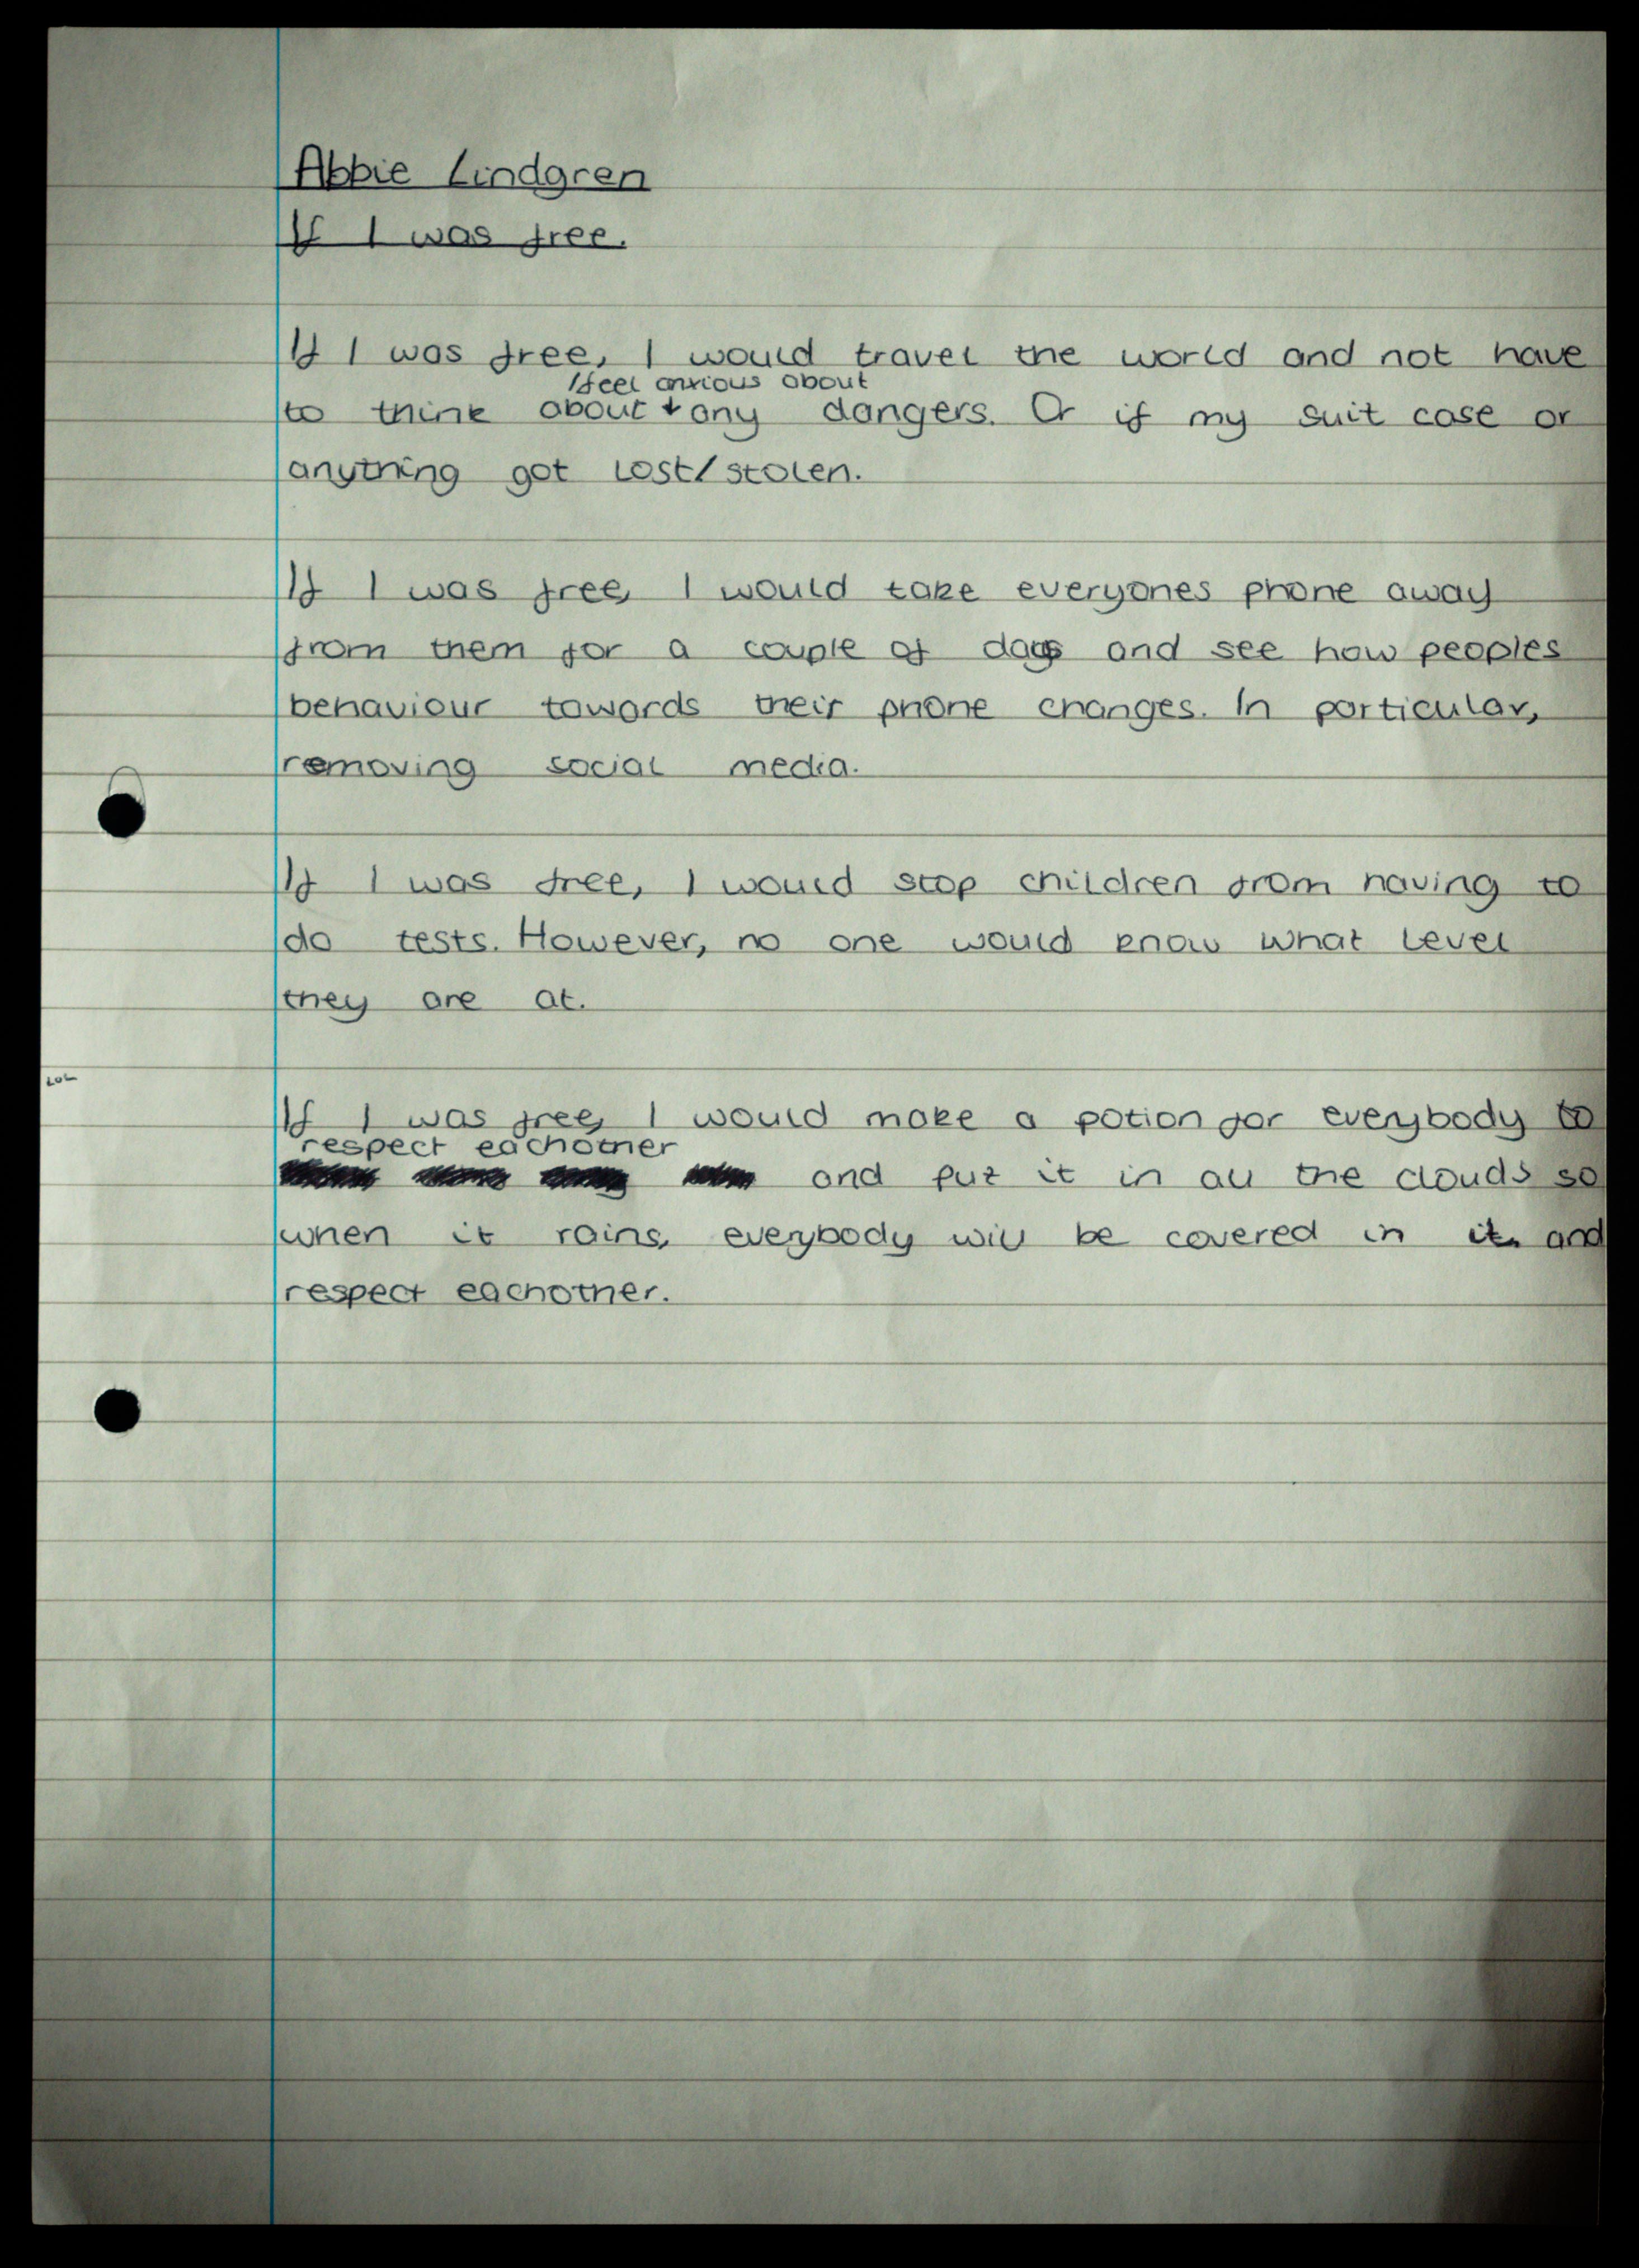 Abbie Lindgren
If I was free.
If I was free, I would travel the world and not have
/feel anxious about
to think about any dangers. Or if my suit case or
anything got lost/stolen.
If I was free, I would take everyones phone away
from them for a couple of days and see how peoples
behaviour towards their phone changes. In particular,
removing social media.
If I was free, I would stop children from having to
do tests. However, no one would know what level
they are at.
LOL
If I was free, I would make a potion for everybody to
respect eachother
and put it in all the clouds so
when it rains, everybody will be covered in it and
respect eachother.